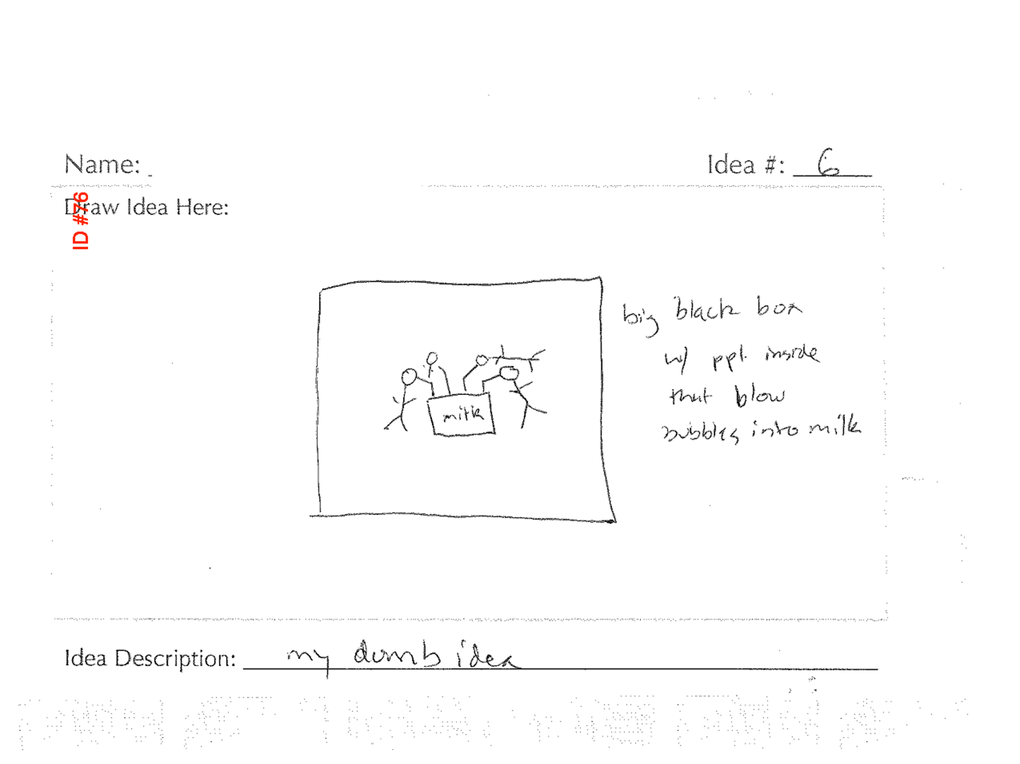 Name:
Idea #: 6
ID #76
Draw Idea Here:
big black box
w/ ppl inside
that blow
bubbles into milk
milk
Idea Description: my dumb idea